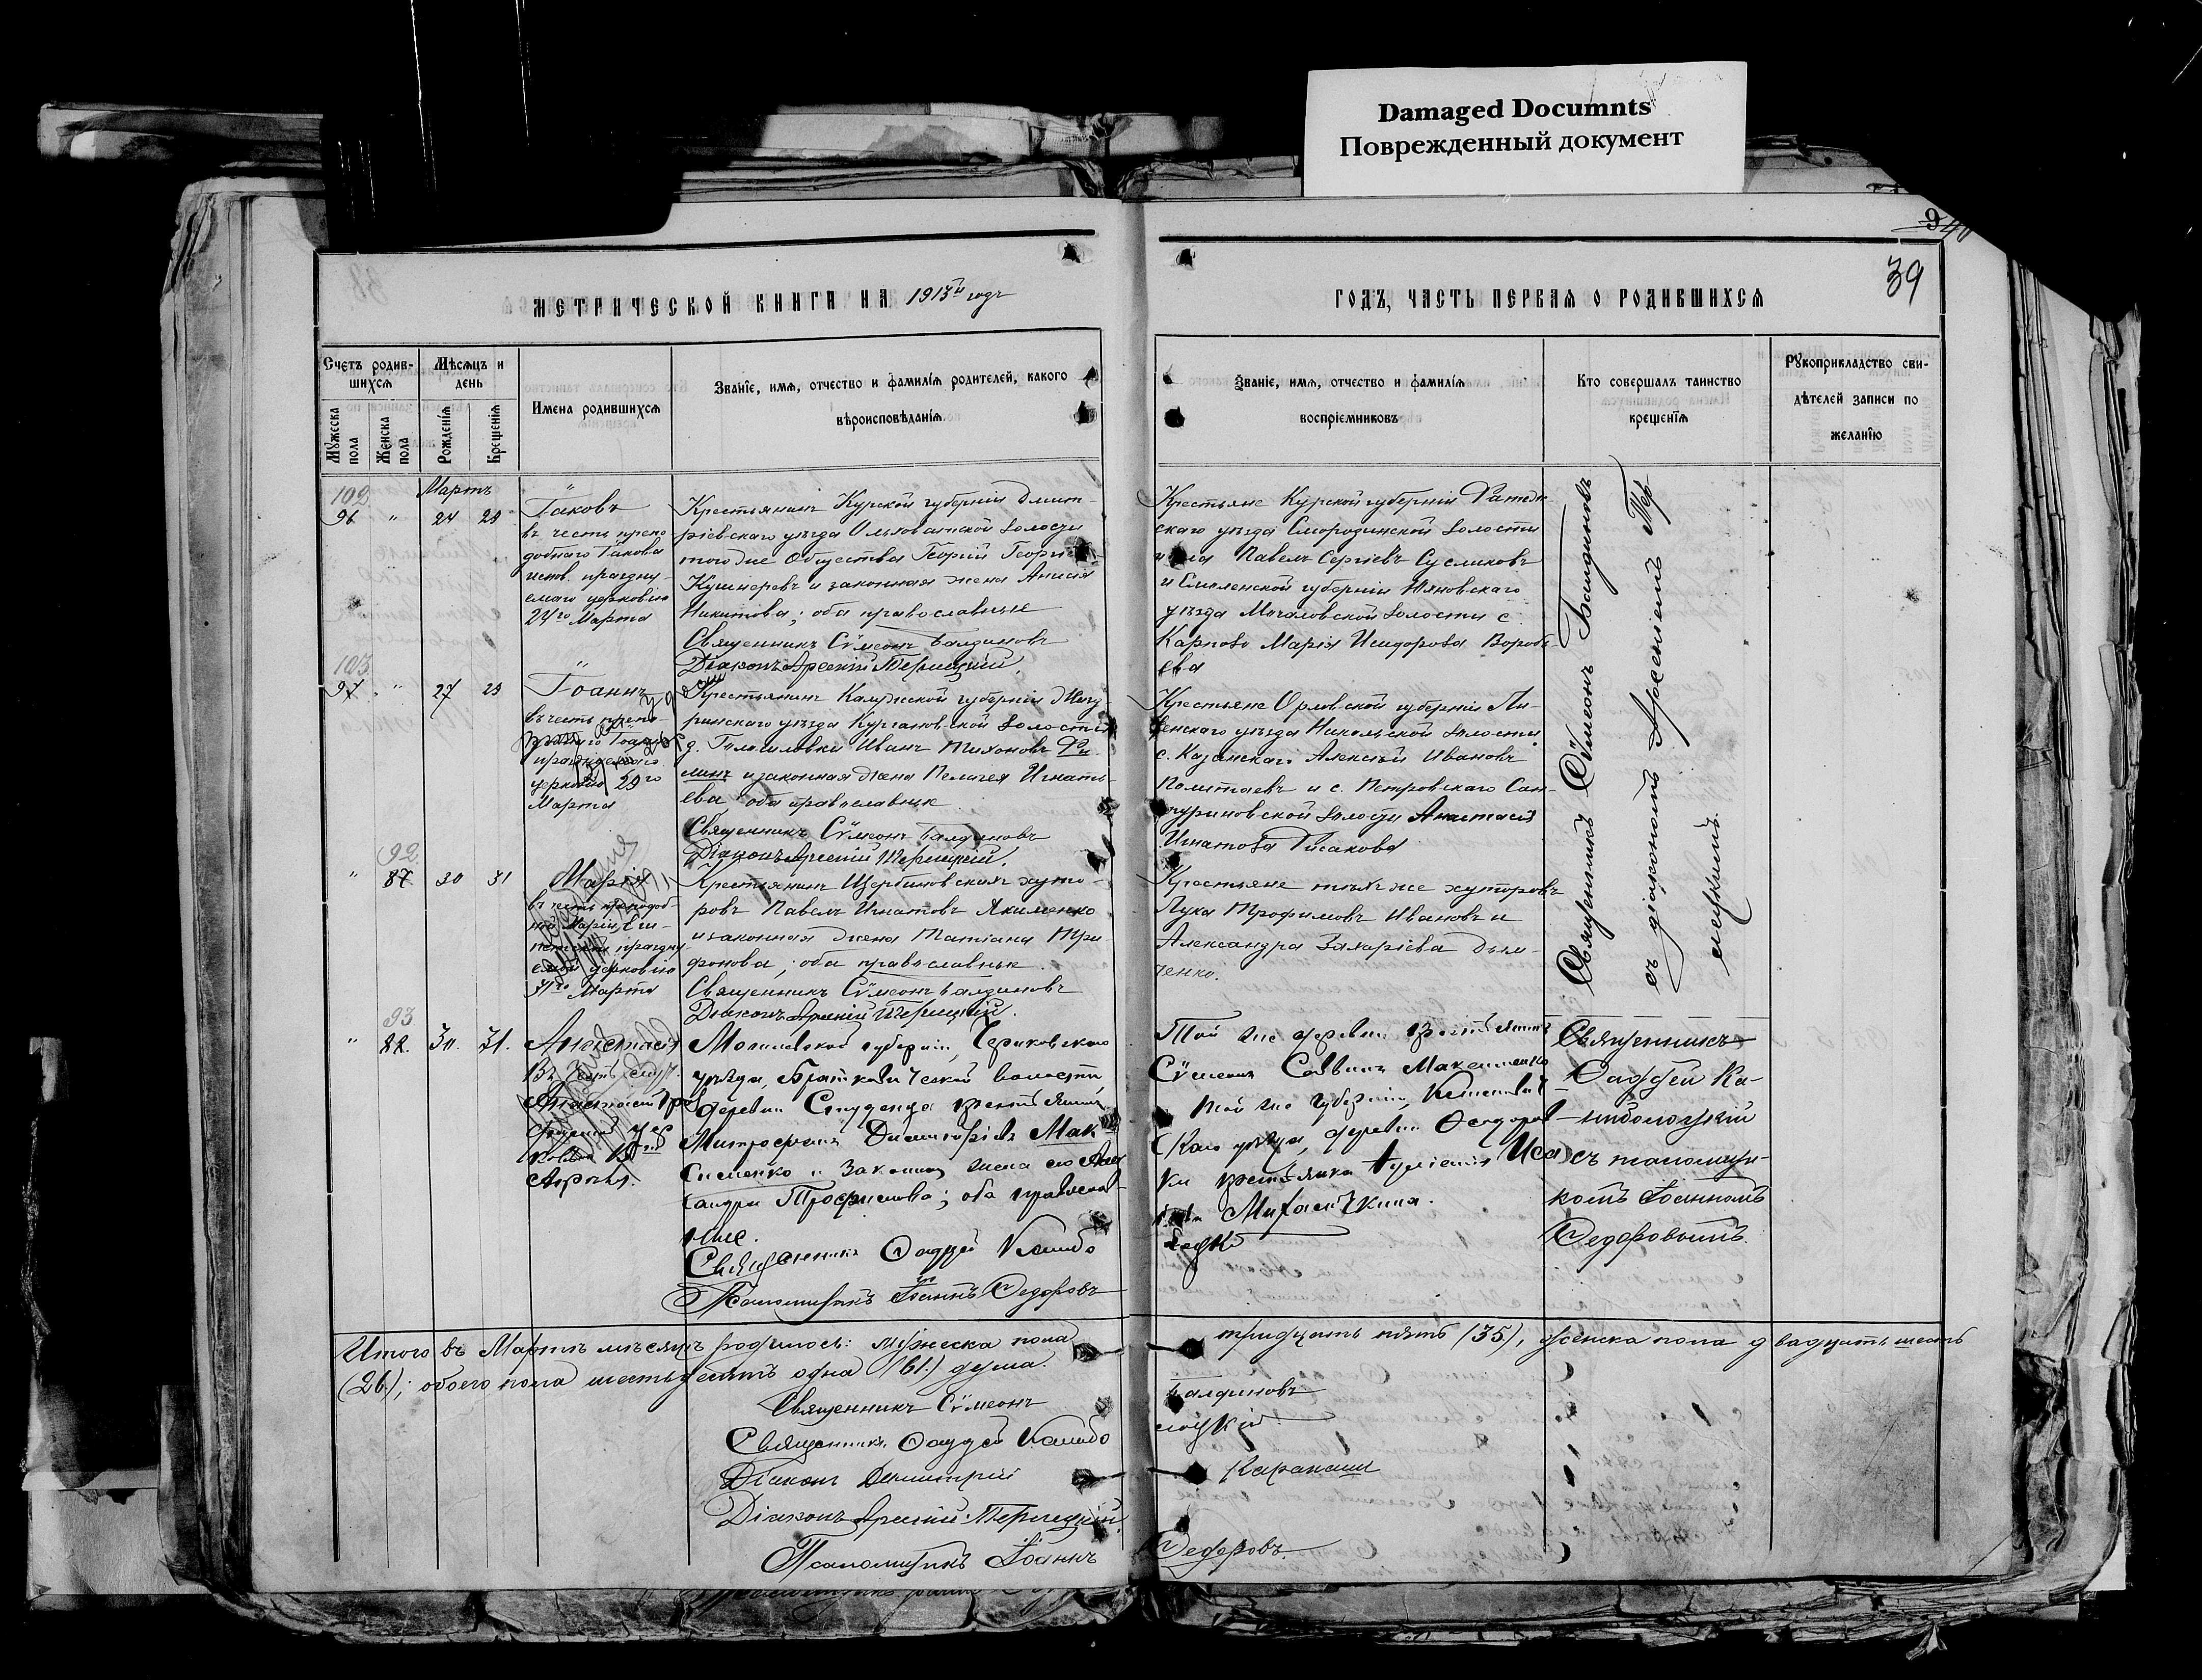 Damaged Documnts
Поврежденный документ
9 40
39
МЕТРИЧЕСКОЙ КНИГИ НА 1913й годъ
ГОДЪ, ЧАСТЬ ПЕРВАЯ О РОДИВШИХСЯ
Счетъ родив-
шихся
Мужеска пола
Женска пола
Мѣсяцъ и
день
Рожденія
Крещенія
Имена родившихся
Званіе, имя, отчество и фамилія родителей, какого
вѣроисповѣданія
Званіе, имя, отчество и фамилія
воспріемниковъ
Кто совершалъ таинство
крещенія
Рукоприкладство сви-
дѣтелей записи по
желанію
Мартъ
102
96 " 24
Іаковъ
въ честь препо
добнаго Іакова
испов. праздну-
емаго церковію
24го Марта
Крестьянинъ Курской губерніи Дмит-
ріевскаго уѣзда Ольховатской волости
того же Общества Георгій
Кушнаревъ и законная жена Анисія
Никитова; оба православные
Священникъ Сѵмеонъ Балдиновъ
Діаконъ Арсеній
Крестьяне Курской губерніи
скаго уѣзда Смородинской волости
Павелъ Сергіевъ Сусликовъ
и Смоленской губерніи
уѣзда Мочаловской волости с.
Карпово Марія Исидорова Воробь-
ева
103
97 " 27 29
Іоаннъ
въ честь препо-
церковію 29го
Марта
Крестьянинъ Калужской губерніи Жизд-
ринскаго уѣзда Кургановской волости
д. Иванъ Тихоновъ
и законная жена Пелагея Игнать-
ева оба православные
Священникъ Сѵмеонъ Балдиновъ
Діаконъ Арсеній
Крестьяне Орловской губерніи Ли-
венскаго уѣзда Никольской волости
с. Казанскаго Алексѣй Ивановъ
Политаевъ и с. Петровскаго
волости Анастасія
Игнатова Рисакова
92
" 87 30 31
Марія
въ честь преподоб-
ной Маріи Еги-
петской праздну
емой церковію
Марта
Крестьянинъ Щербиновскихъ хуто-
ровъ Павелъ Игнатовъ Якименко
и законная жена Татіана Три-
фонова; оба православные
Священникъ Сѵмеонъ Балдиновъ
Діаконъ Арсеній
Крестьяне тѣхъ же хуторовъ
Лука Трофимовъ Ивановъ и
Александра Захаріева Дьм-
ченко.
Священникъ Сѵмеонъ Балдиновъ
съ діакономъ Арсеніемъ Тер-
лецкимъ
93
" 88. 30. 31.
Анастасія
Въ честь
Апрѣля.
Могилевской губерніи, Чериковскаго
уѣзда, волости,
деревни Студенца крестьянинъ
Митрофанъ Димитріевъ Мак-
сименко и законная жена его
сандра Трофимова; оба православ-
ные.
Священникъ Фаддей Камбо
Псаломщикъ Іоаннъ Федоровъ
Той же деревни крестьянинъ
Сѵмеонъ Саввинъ Максименко
той же губерніи,
скаго уѣзда, деревни Федоров-
ки крестьянка
лоцкій
Священникъ
Фаддей Ка-
мболоцкій
съ псаломщи-
комъ Іоанномъ
Федоровымъ.
Итого въ Мартѣ мѣсяцѣ родилось: мужеска пола тридцать пять (35), женска пола двадцать шесть
(26); обоего пола шестьдесятъ одна (61) душа.
Священникъ Сѵмеонъ Балдиновъ
Священникъ Фаддей Камбо лоцкій
Діаконъ Димитрій Каракаши
Діаконъ Арсеній Терлецкій.
Псаломщикъ Іоаннъ Федоровъ.